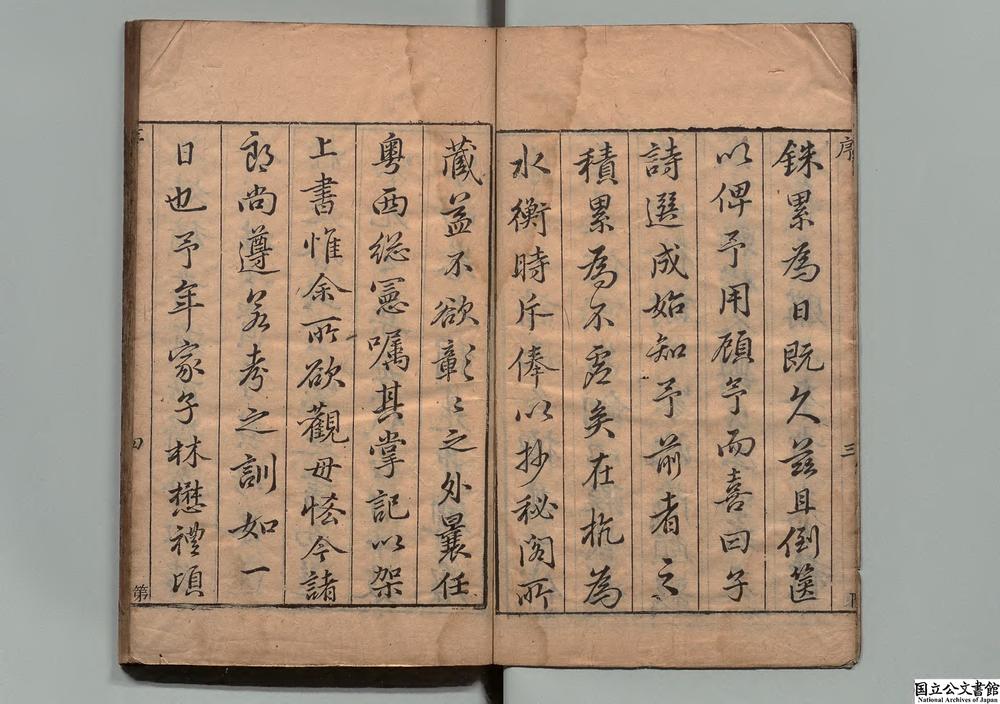 序
三
銖累為日既久茲且倒篋
以俾予用顧予而喜曰子
詩選成始知予前者之
積累為不虛矣在杭為
水衡時斥俸以抄秘閣所
藏蓋不欲彰彰之外曩任
粵西總憲囑其掌記以架
上書惟余所欲觀毋恡今諸
郎尚遵若考之訓如一
日也予年家子林懋禮頃
四
第
国立公文書館
National Archives of Japan